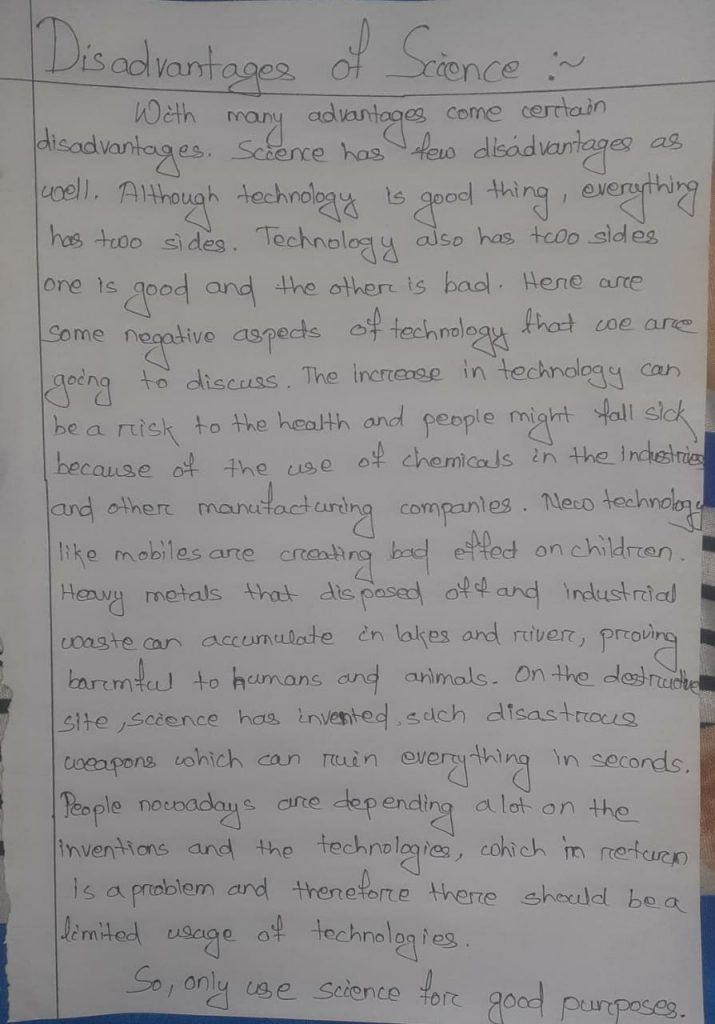 Disadvantages of Science :~
With many advantages come certain
disadvantages. Science has few disadvantages as
well. Although technology is good thing, everything
has two sides. Technology also has two sides
one is good and the other is bad. Here are
some negative aspects of technology that we are
going to discuss. The increase in technology can
be a risk to the health and people might fall sick
because of the use of chemicals in the industries
and other manufacturing companies. New technology
like mobiles are creating bad effect on children.
Heavy metals that disposed off and industrial
waste can accumulate in lakes and river, proving
harmful to humans and animals. On the destructive
site, science has invented such disastrous
weapons which can ruin everything in seconds.
People nowadays are depending a lot on the
inventions and the technologies, which in return
is a problem and therefore there should be a
limited usage of technologies.
So, only use science for good purposes.